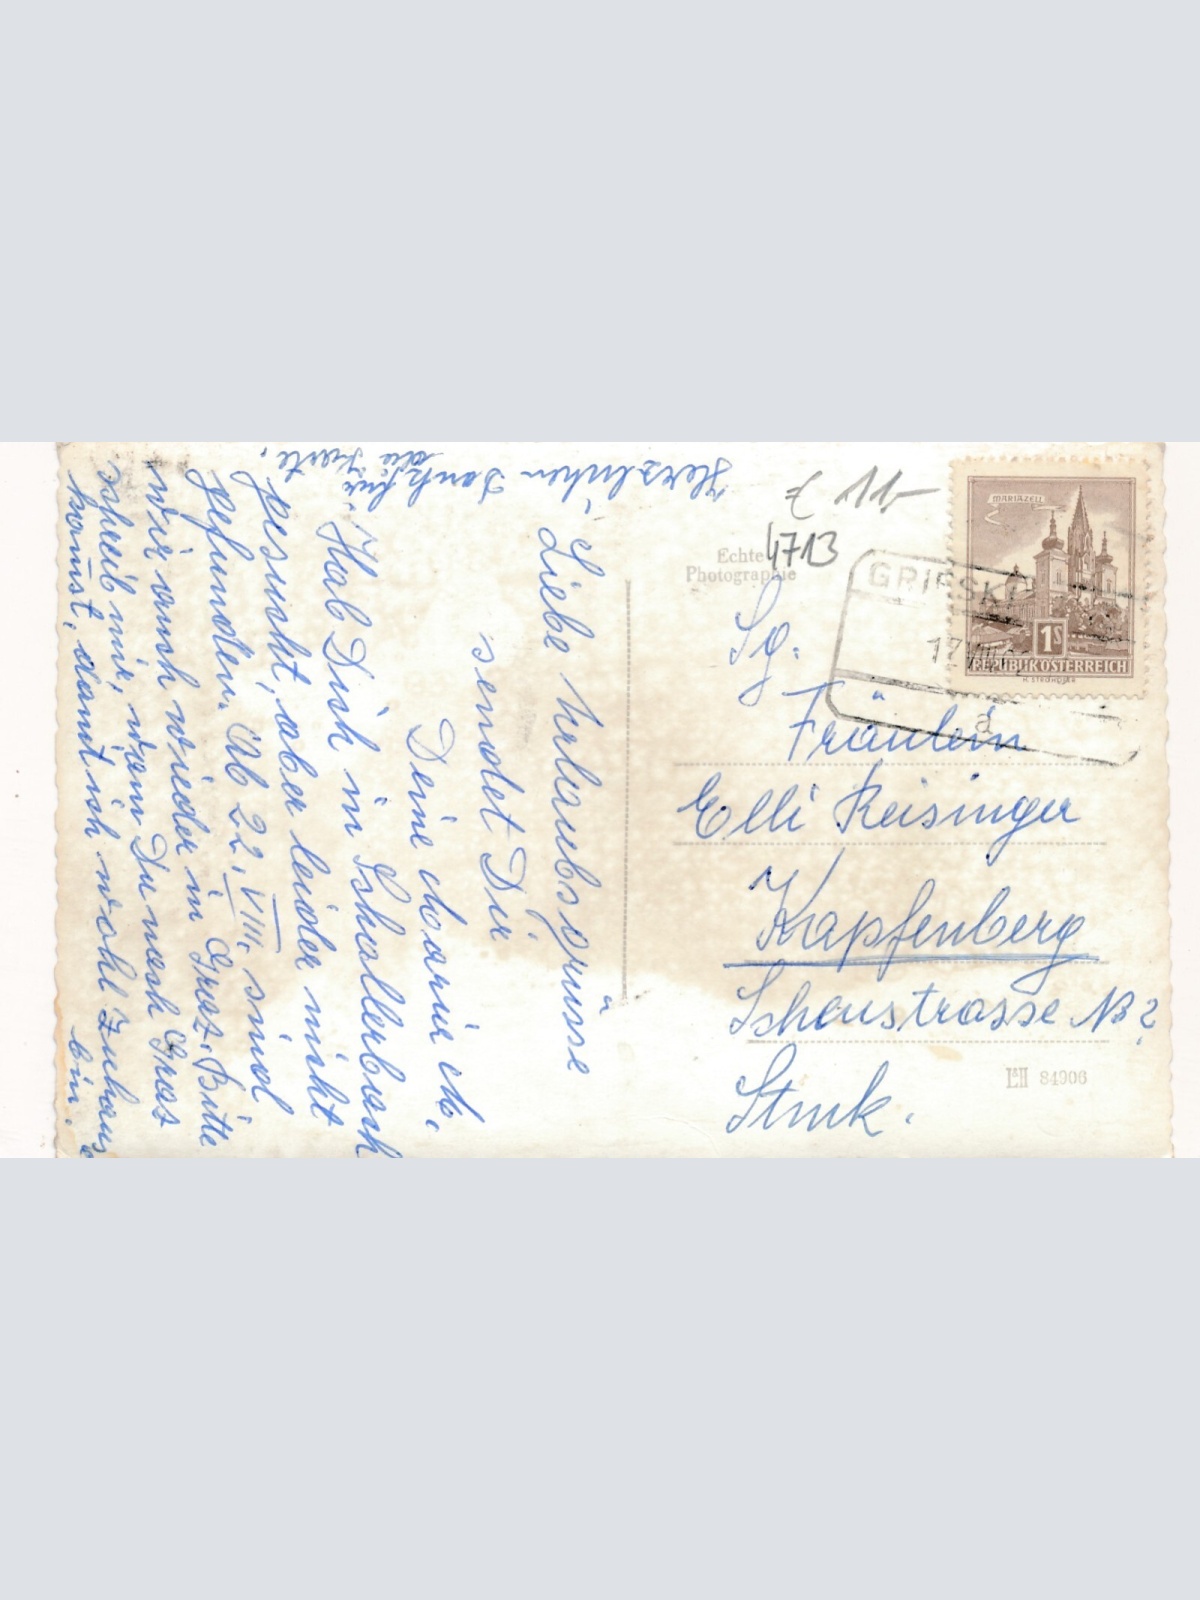 Herzlichen Dank für
die Karte.
Liebe Urlaubsgrüsse
sendet Dir
Deine Maria M.
Hab Dich in Schallerbach
gesucht, aber leider nicht
gefunden. Ab 22. VIII. sind
wir auch wieder in Graz. Bitte
schreib mir, wann Du nach Graz
kom̄st, damit ich wohl Zuhaus
bin.
Z 11-
4713
Echte
Photographie
MARIAZELL
1S
REPUBLIK ÖSTERREICH
GRIESK
17.VIII.
a
Sg.
Fräulein
Elli Reisinger
Kapfenberg
strasse
Stmk.
L&II 84906